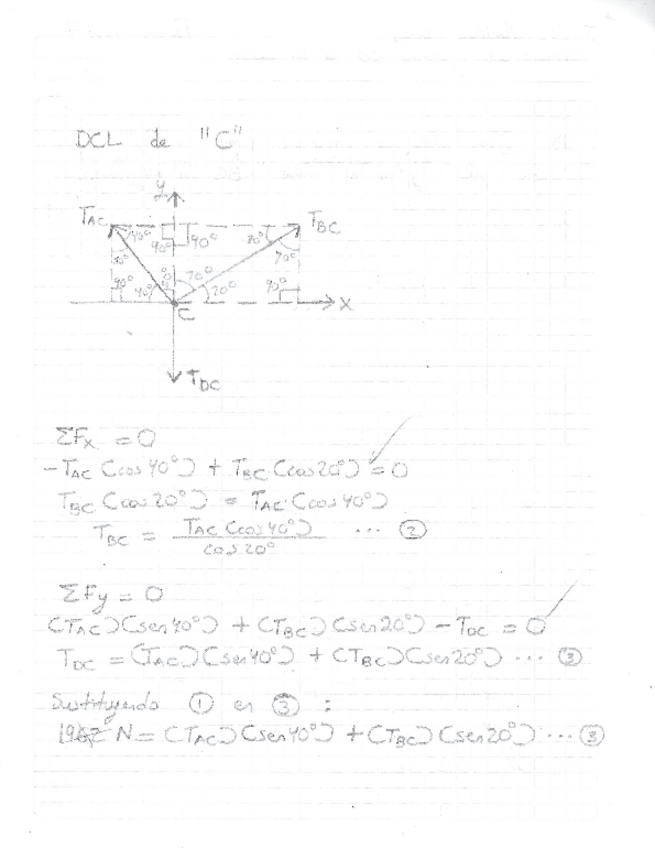 DCL de "C"
y
TAC
TBC
40° 90° 90° 20°
70°
90° 40° 70° 20° 90°
X
C
TDC
ΣFx = 0
-TAC (cos 40°) + TBC (cos 20°) = 0
TBC (cos 20°) = TAC (cos 40°)
TBC = TAC (cos 40°) / cos 20° ... ②
ΣFy = 0
(TAC)(sen 40°) + (TBC)(sen 20°) - TDC = 0
TDC = (TAC)(sen 40°) + (TBC)(sen 20°) ... ③
Sustituyendo ① en ③ :
N = (TAC)(sen 40°) + (TBC)(sen 20°) ... ③